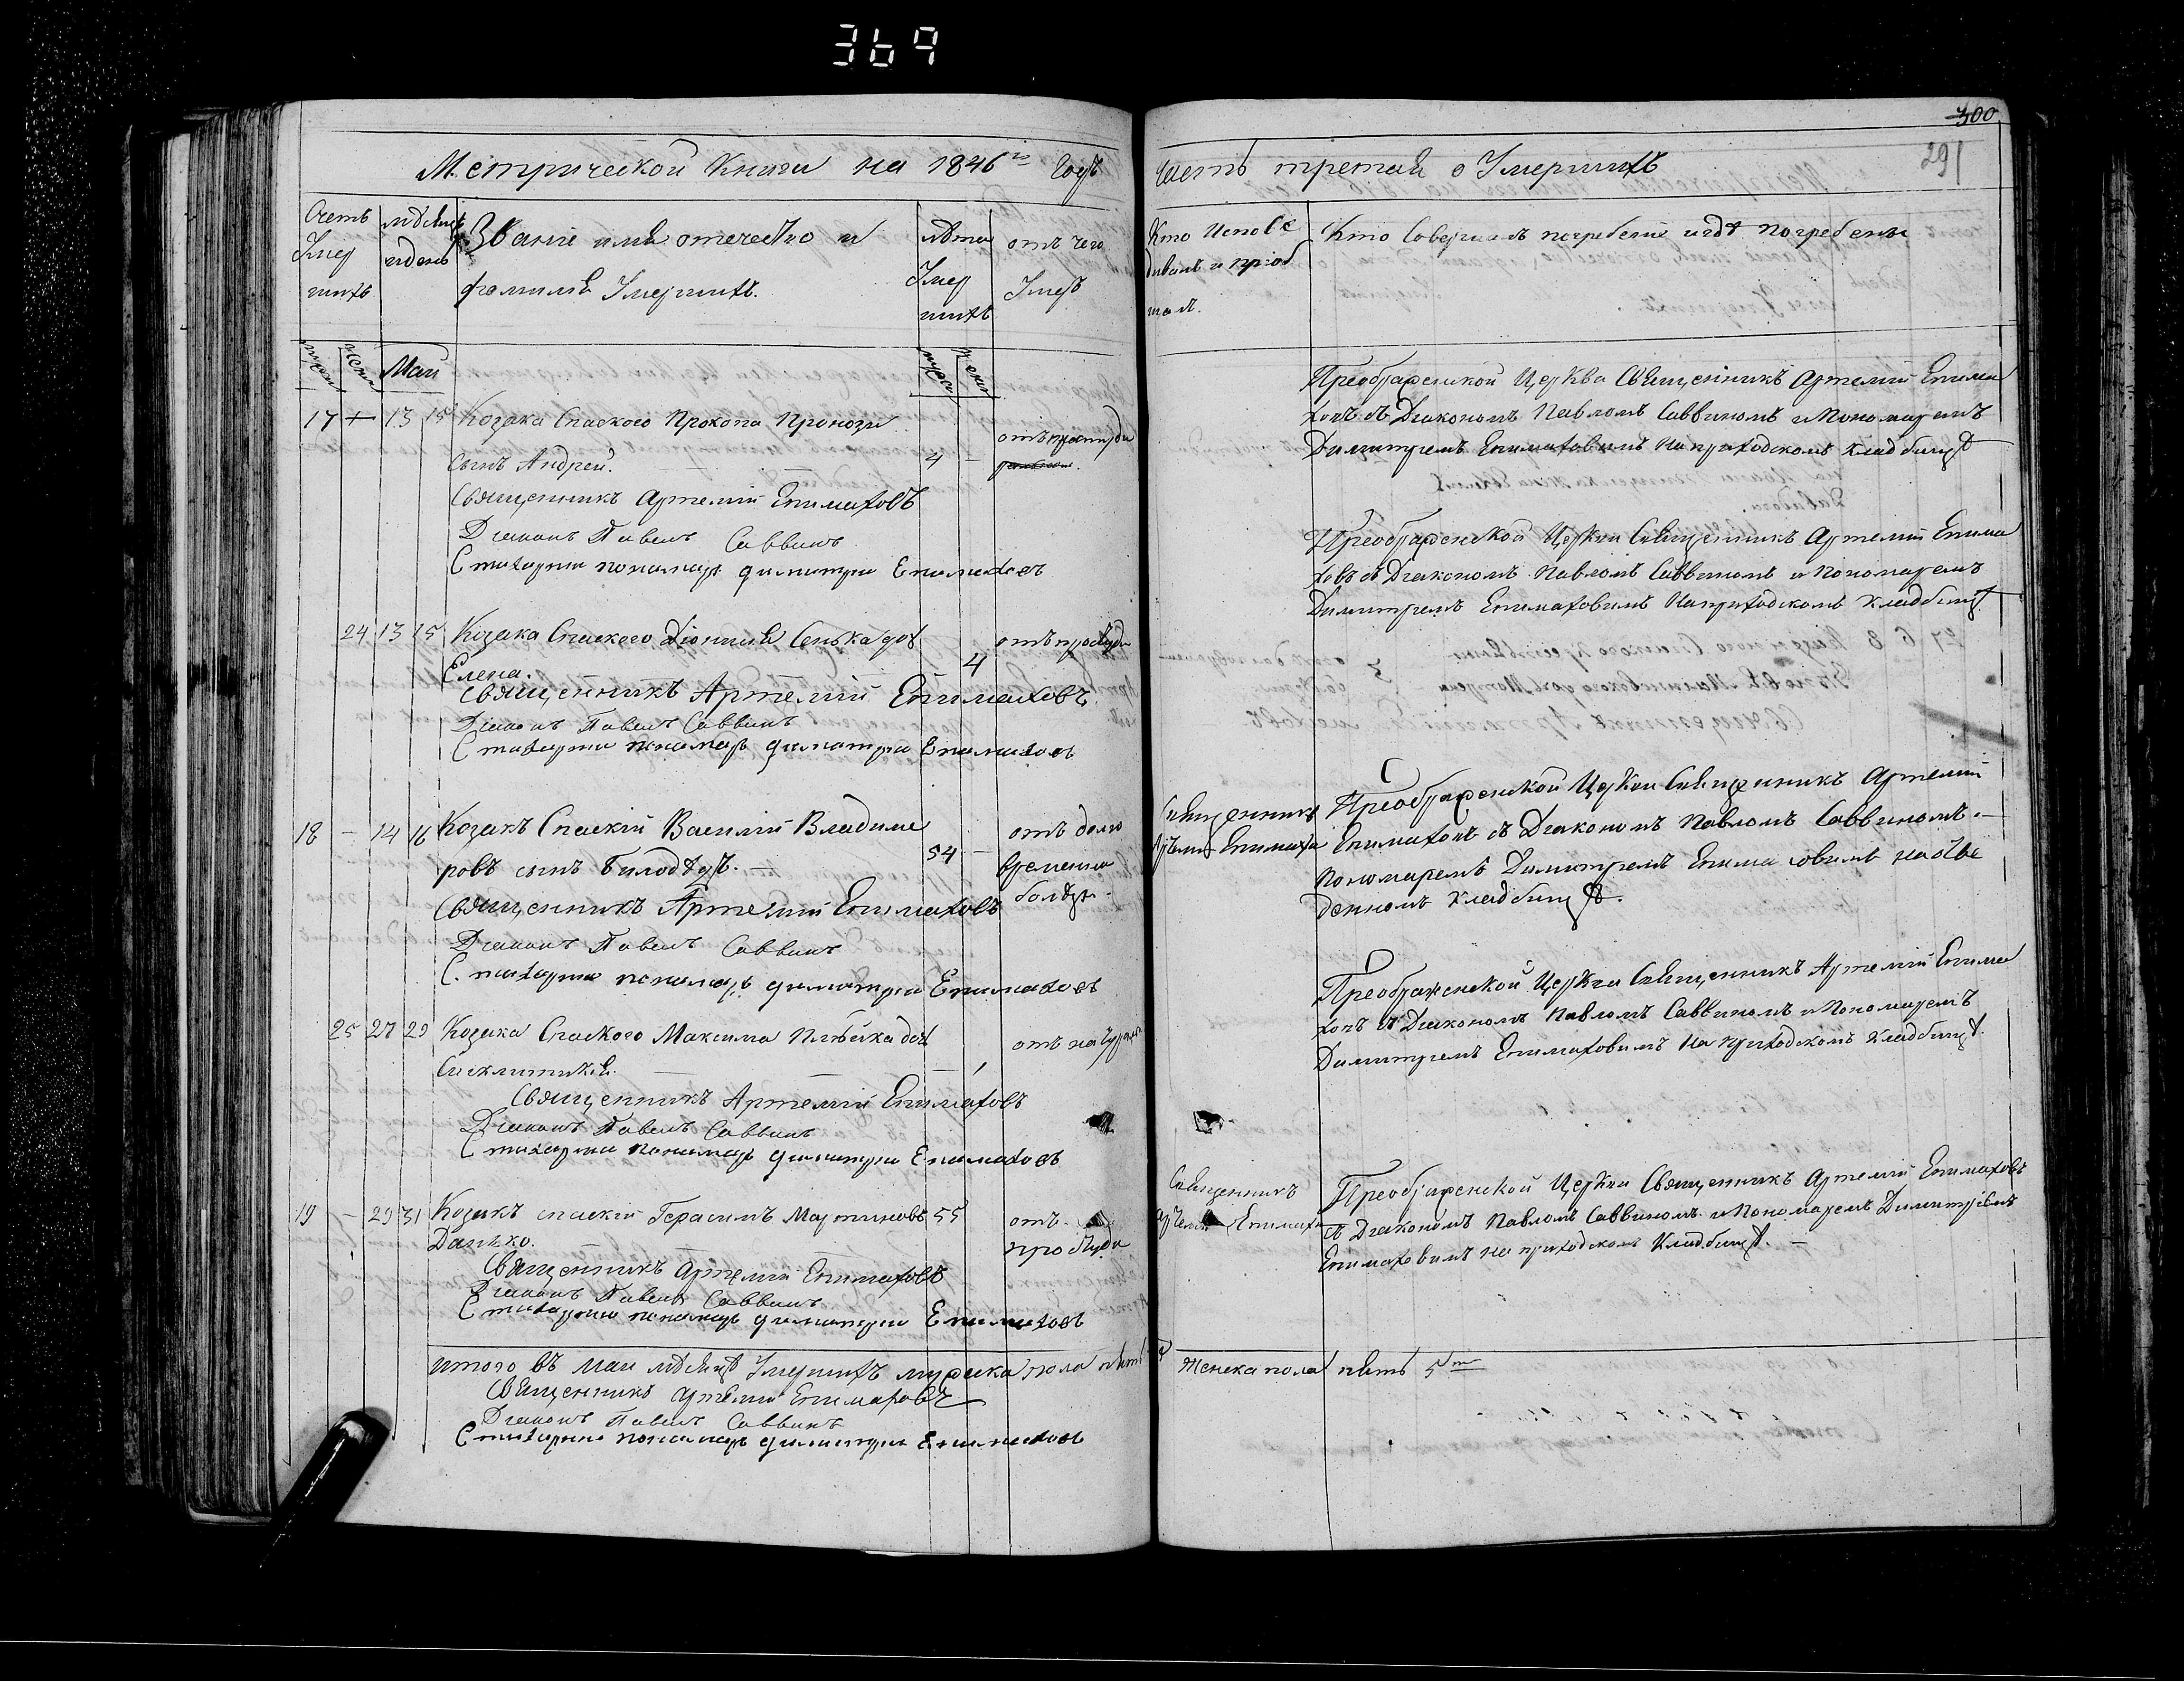 369
300
291
Метрической Книги на 1846го Годъ
Часть третая о Умершихъ
Счетъ Умер шихъ
мѣсяцъ и день
Званіе имя отечество и фамилія Умершихъ.
лѣта Умер шихъ
отъ чего Умеръ
Кто Испове дивалъ и пріоб щалъ.
Кто Совершалъ погребеніе и гдѣ погребены
муж женс Май
муж женс
17 13 15 Козака Спаского Прокопа Пронози
сынъ Андрей. 4 — отъ простуди
Священникъ Артемій Епимаховъ
Діаконъ Павелъ Саввинъ
Стихарни пономарь димитри Епимаховъ
Преображенской Церкви Священникъ Артемій Епима
ховъ съ Діакономъ Павломъ Саввиномъ и Пономаремъ
Димитріемъ Епимаховимъ на приходскомъ кладбищѣ
24 13 15 Козака Спаского Діонисія Сенька дочь
Елена. 4 отъ простуди
Священникъ Артемій Епимаховъ
Діаконъ Павелъ Саввинъ
Стихарни пономарь димитри Епимаховъ
Преображенской Церкви Священникъ Артемій Епима
ховъ съ Діакономъ Павломъ Саввиномъ и Пономаремъ
Димитріемъ Епимаховимъ На приходскомъ кладбищѣ
18 — 14 16 Козакъ Спаскій Василій Владиме
ровъ сынъ Билодѣдъ. — 54 — отъ долго
временна
болѣзн.
Священникъ Артемій Епимаховъ
Діаконъ Павелъ Саввинъ
Стихарни пономарь димитри Епимаховъ
Священникъ
Артемій Епимахо
Преображенской Церкви Священникъ Артемій
Епимаховъ съ Діакономъ Павломъ Саввиномъ. —
Пономаремъ Димитріемъ Епимаховимъ на
денномъ кладбищѣ.
25 27 29 Козака Спаского Максима дочь
1 отъ
Священникъ Артемій Епимаховъ
Діаконъ Павелъ Саввинъ
Стихарни пономарь димитри Епимаховъ
Преображенской Церкви Священникъ Артемій Епима
ховъ съ Діакономъ Павломъ Саввиномъ и Пономаремъ
Димитріемъ Епимаховимъ На приходскомъ кладбищѣ.
19 — 29 31 Козакъ спаскій Герасимъ Мартиновъ 55 отъ
Данько. простуди
Священникъ Артемій Епимаховъ
Діаконъ Павелъ Саввинъ
Стихарни пономарь димитри Епимаховъ
Священникъ
Епимахо
Преображенской Церкви Священникъ Артемій Епимаховъ
съ Діакономъ Павломъ Саввиномъ и Пономаремъ Димитріемъ
Епимаховимъ на приходскомъ Кладбищѣ. —
итого въ маи мѣсяцѣ Умершихъ мужска пола пять
Женска пола пять 5ть
Священникъ Артемій Епимаховъ
Діаконъ Павелъ Саввинъ
Стихарни пономарь димитри Епимаховъ